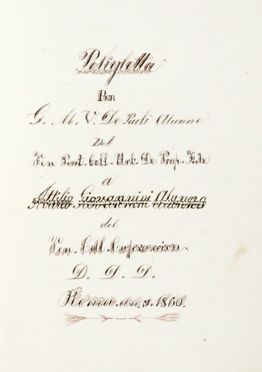 Poliglotta
Per
G. M. V. De Paoli Alunno
Del
Ven Pont. Coll. Urb. De Prop. Fide
a
Attilio Giovannini Alunno
del
Ven. Coll.
D. D. D.
Roma 1860.